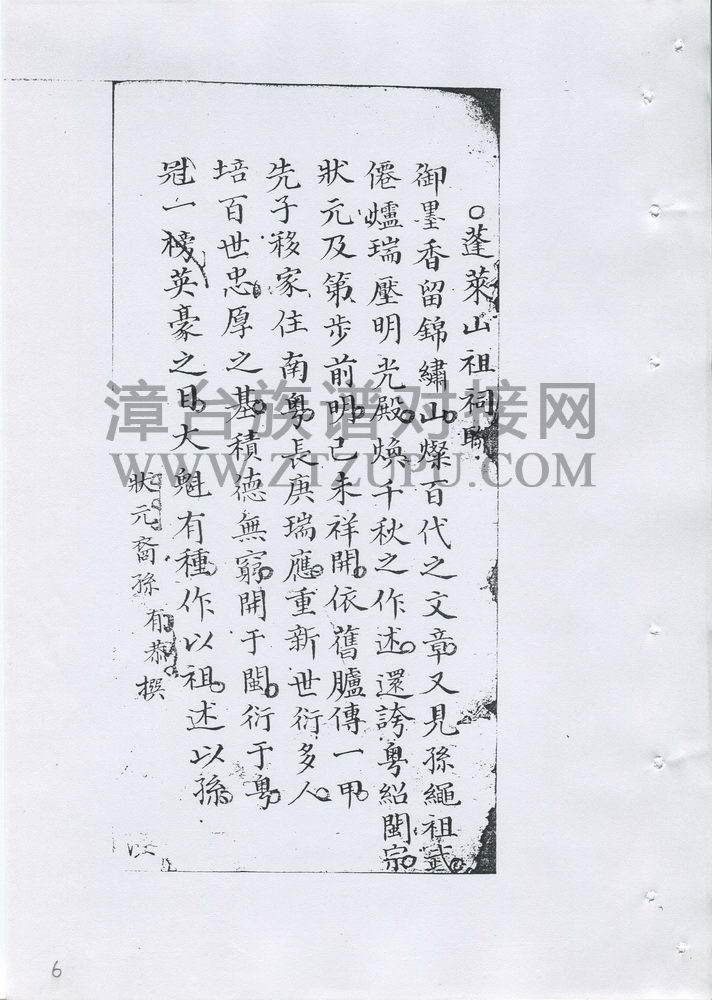 ○蓬萊山祖祠聯
御墨香留錦繡山燦百代之文章又見孫繩祖武
僊爐瑞壓明光殿煥千秋之作述還誇粵紹閩宗
狀元及第步前明己未祥開依舊臚傳一甲
先子移家住南粵長庚瑞應重新世衍多人
培百世忠厚之基積德無窮開于閩衍于粵
冠一榜英豪之目大魁有種作以祖述以孫
狀元裔孫有恭撰
漳台族谱对接网
WWW.ZTZUPU.COM
6